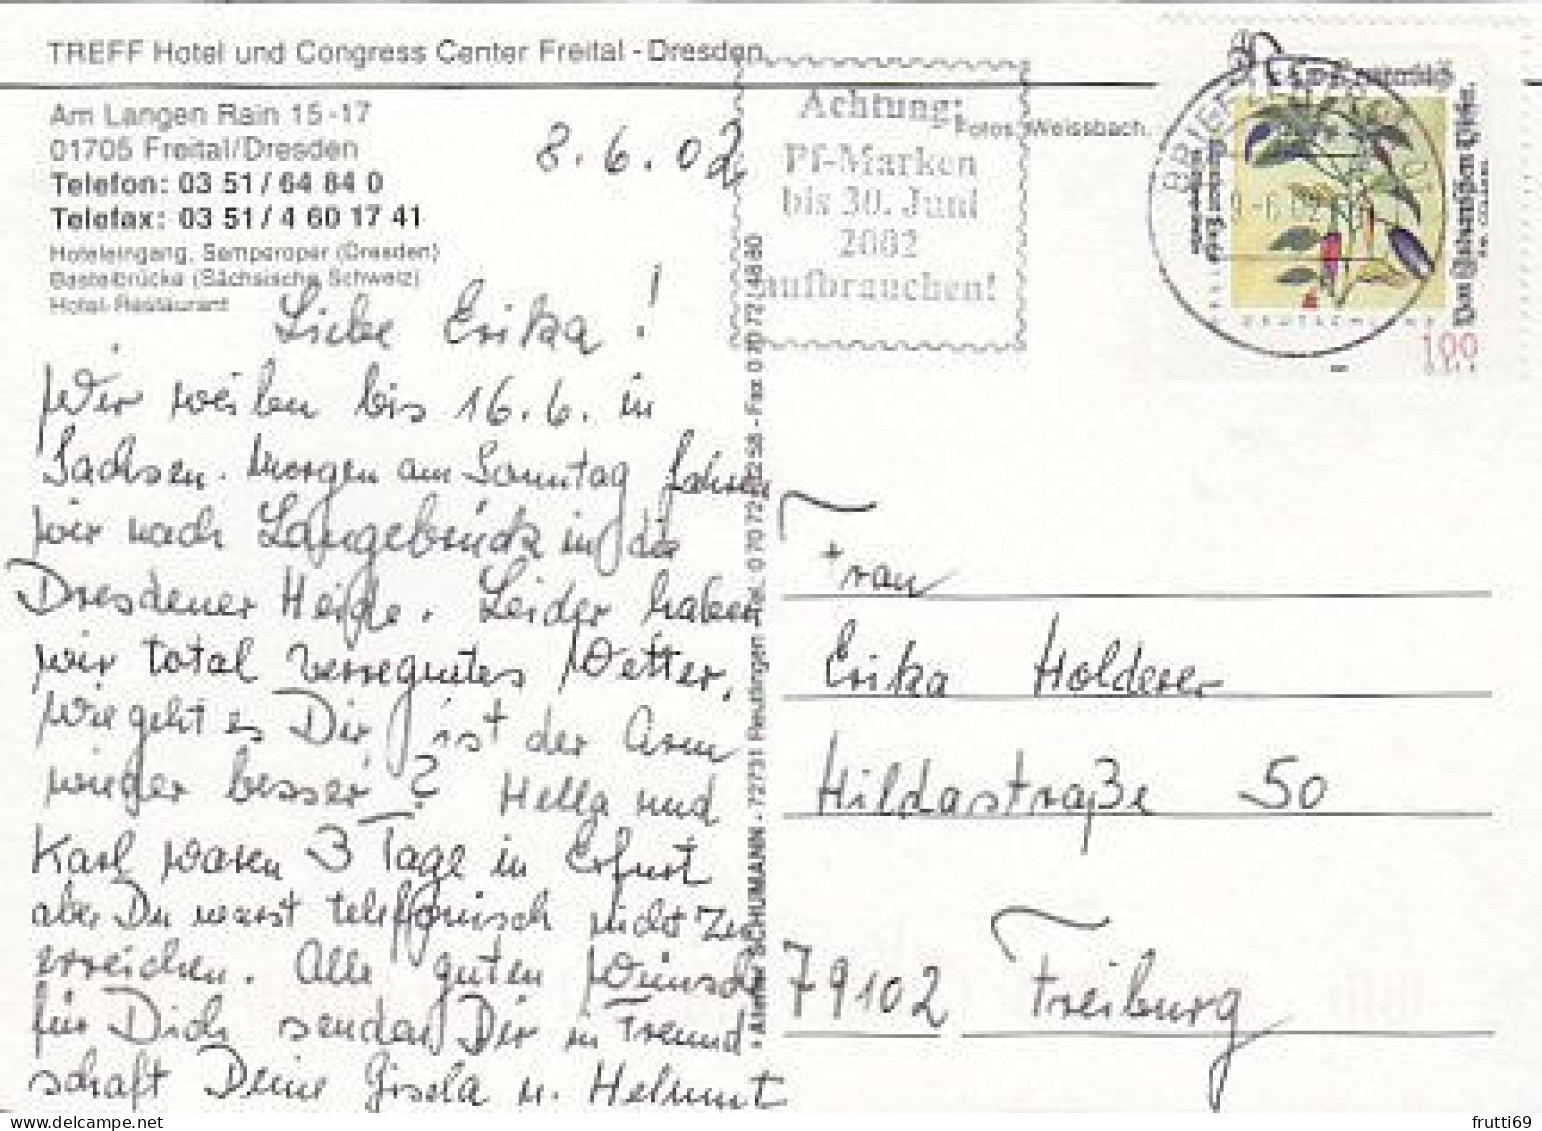 TREFF Hotel und Congress Center Freital - Dresden
Am Langen Rain 15-17
01705 Freital/Dresden
Telefon: 03 51 / 64 84 0
Telefax: 03 51 / 4 60 17 41
Hoteleingang, Semperoper (Dresden)
Basteibrücke (Sächsische Schweiz)
Hotel-Restaurant
8.6.02
Fotos: Weissbach.
Achtung:
Pf-Marken
bis 30. Juni
2002
aufbrauchen!
100
Liebe Erika!
Wir weilen bis 16.6. in
Sachsen. Morgen am Sonntag fahren
wir nach Langebrück in die
Dresdener Heide. Leider haben
wir total verregnetes Wetter.
Wie geht es Dir, ist der Arm
wieder besser? Hella und
Karl waren 3 Tage in Erfurt
aber Du warst telefonisch nicht zu
erreichen. Alle guten Wünsche
für Dich senden Dir in Freund
schaft Deine Gisela u. Helmut
Atelier SCHUMANN - 72731 Reutlingen - Tel. 0 70 72 / 22 58 - Fax 0 70 72 / 48 80
Frau
Erika Holderer
Hildastraße 50
79102 Freiburg
frutti69